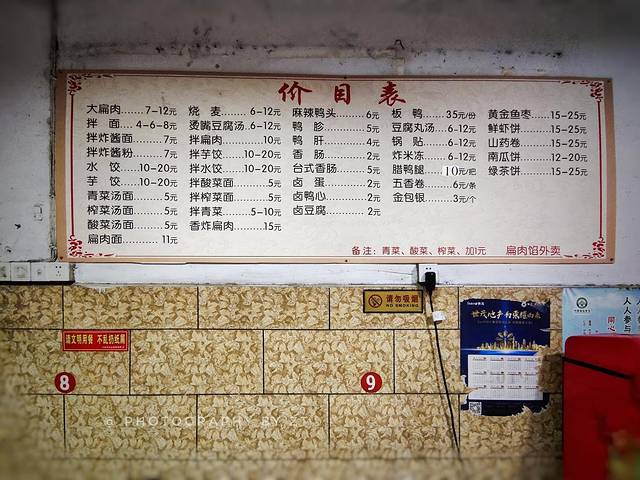 价目表
大扁肉.......7-12元
拌 面....4-6-8元
拌炸酱面........7元
拌炸酱粉........7元
水 饺.....10-20元
芋 饺.....10-20元
青菜汤面........5元
榨菜汤面........5元
酸菜汤面........5元
扁肉面.........11元
烧 麦.......6-12元
烫嘴豆腐汤..6-12元
拌扁肉.........10元
拌芋饺....10-20元
拌水饺....10-20元
拌酸菜面........5元
拌榨菜面........5元
拌青菜......5-10元
香炸扁肉.......15元
麻辣鸭头........6元
鸭 胗........5元
鸭 肝........4元
香 肠........2元
台式香肠........5元
卤 蛋........2元
卤鸭心........2元
卤豆腐........2元
板 鸭.....35元/份
豆腐丸汤...6-12元
锅 贴.....6-12元
炸米冻.....6-12元
腊鸭腿....10元/把
五香卷......6元/条
金包银......3元/个
黄金鱼枣.....15-25元
鲜虾饼.......15-25元
山药卷.......15-25元
南瓜饼.......12-20元
绿茶饼.......15-25元
备注：青菜、酸菜、榨菜、加1元 扁肉馅外卖
请勿吸烟
NO SMOKING
请文明用餐 不乱扔纸屑
8
9
人人参与
同心
@ PHOTOGRAPHY BY